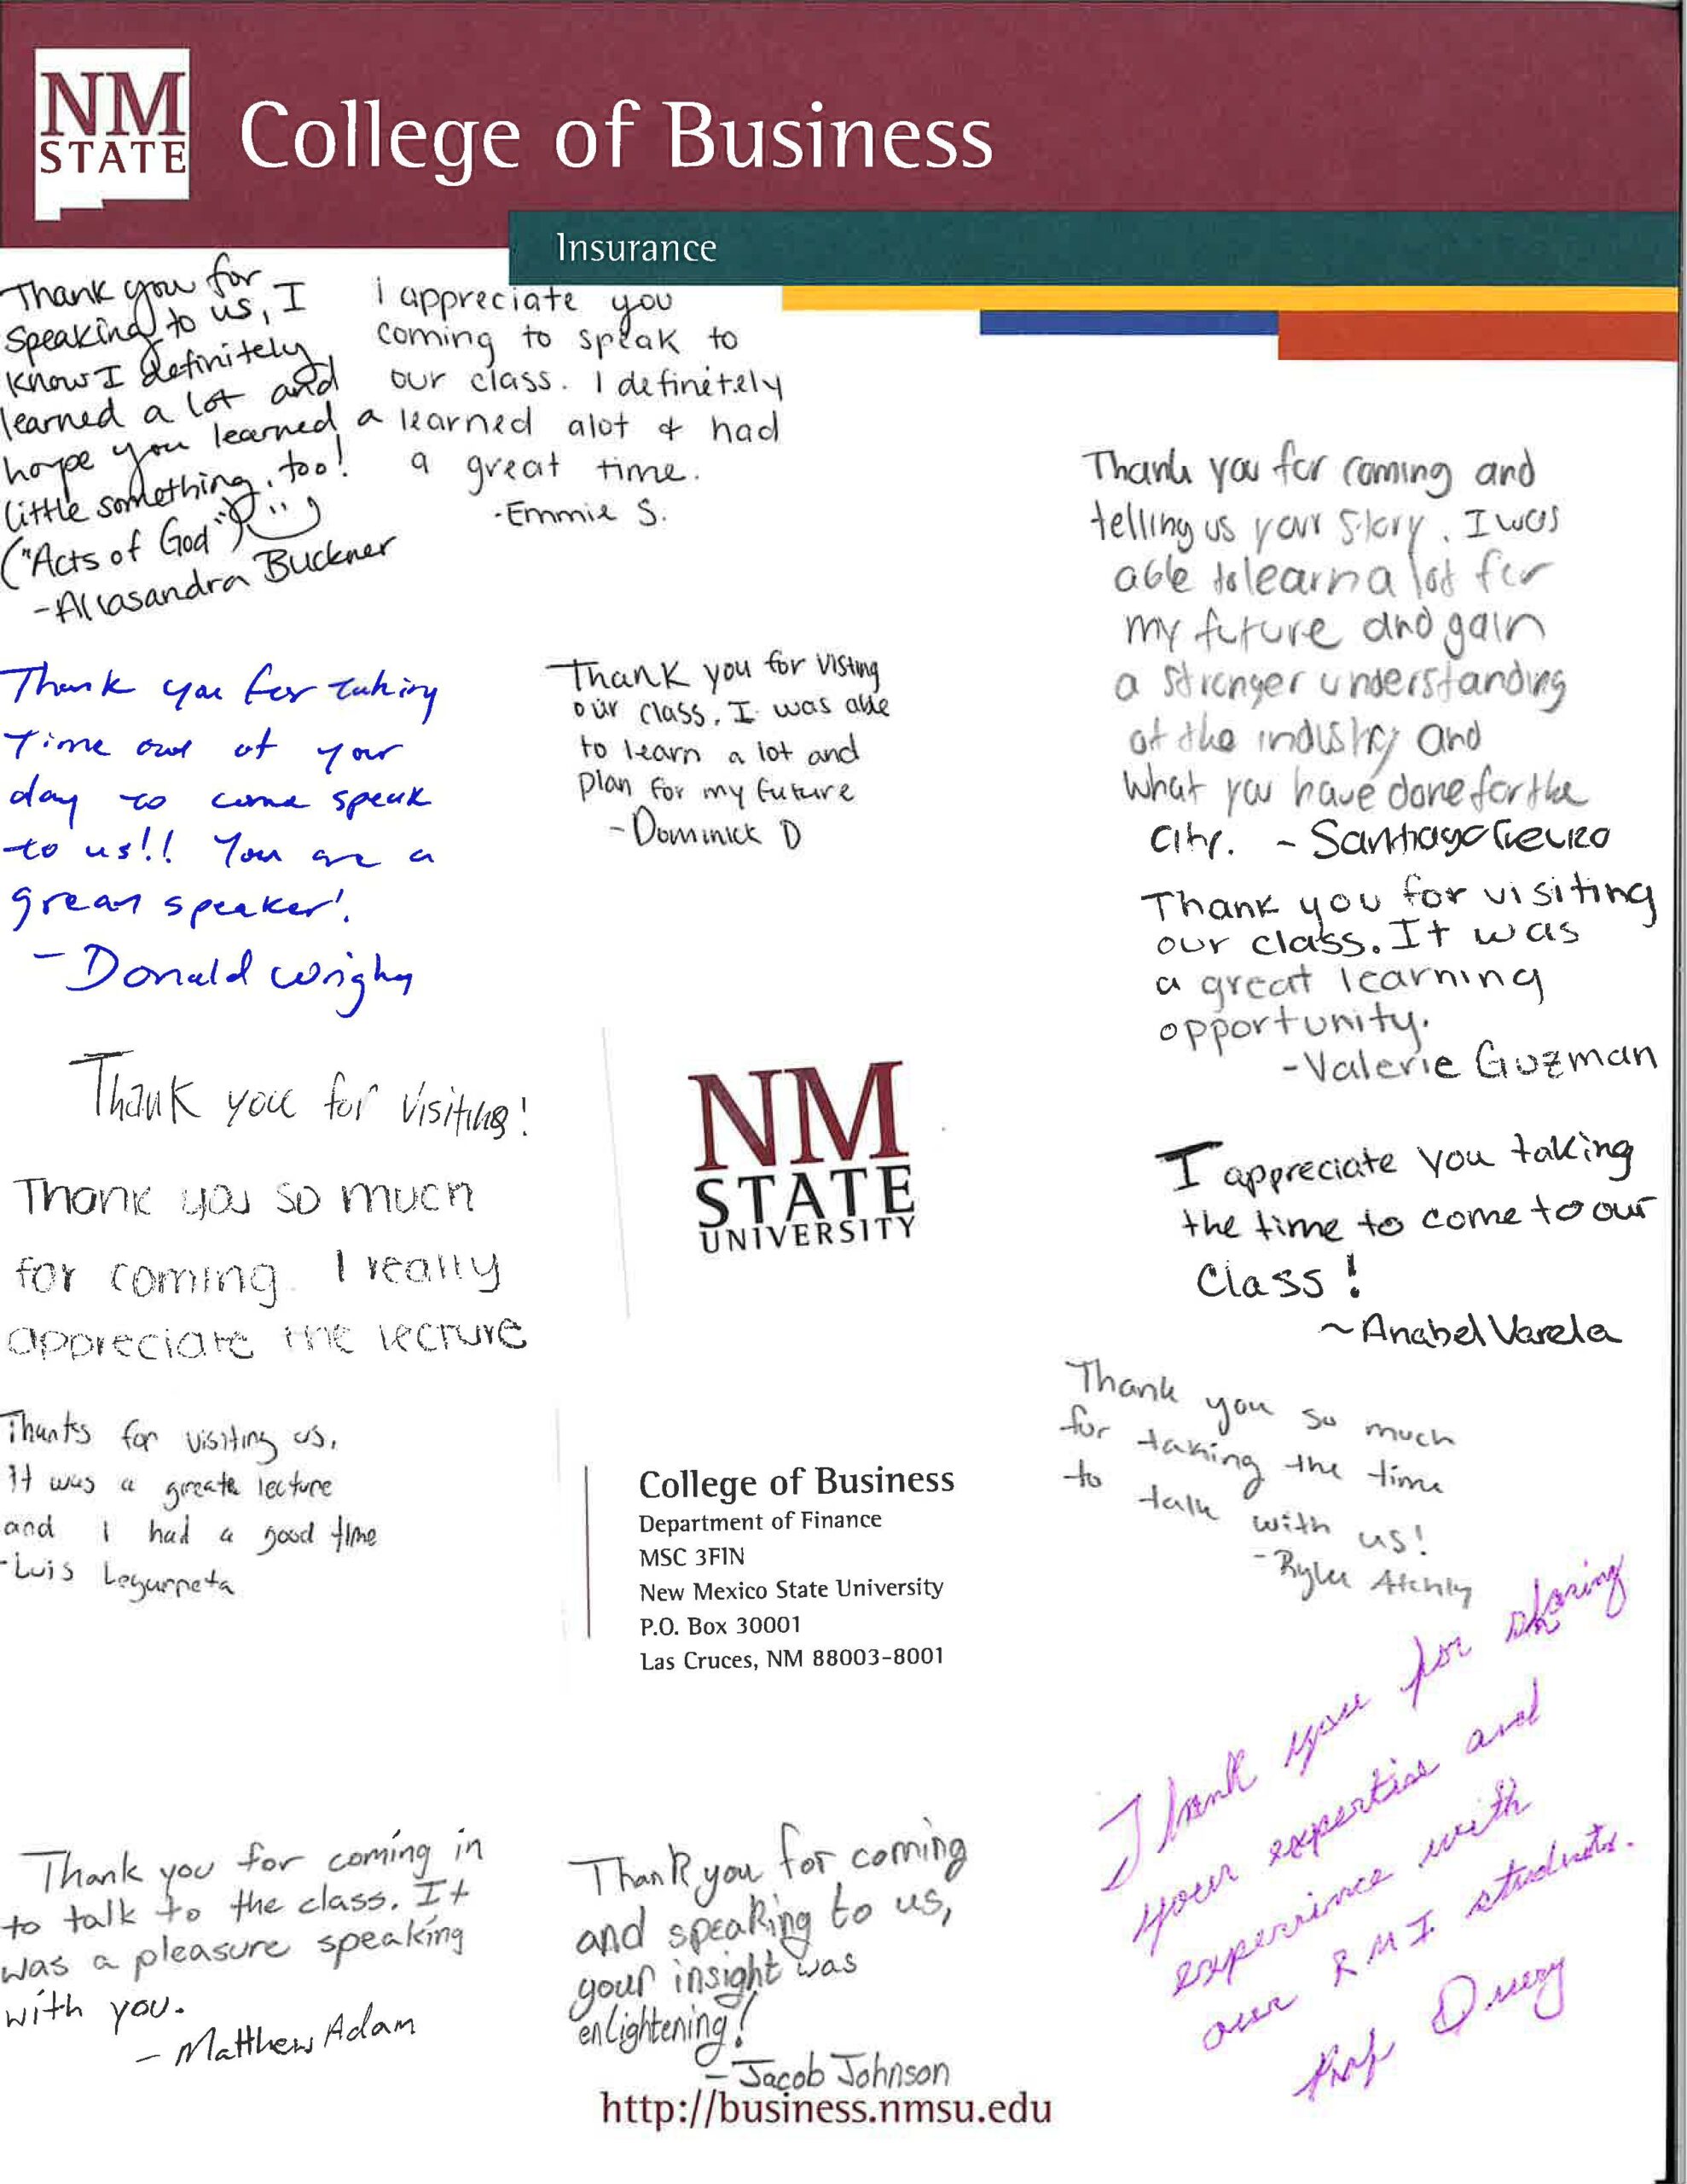 NM
STATE
College of Business
Insurance
Thank you for
speaking to us, I
know I definitely
learned a lot and
hope you learned a
little something, too!
("Acts of God")
-Allasandra Buckner
i appreciate you
coming to speak to
our class. I definitely
learned alot & had
a great time.
-Emmie S.
Thank you for coming and
telling us your story. I was
able to learn a lot for
my future and gain
a stronger understanding
of the industry and
what you have done for the
city. - Santiago
Thank you for taking
Time out of your
day to come speak
to us!! You are a
great speaker!
- Donald Wright
Thank you for visting
our class. I was able
to learn a lot and
plan for my future
- Dominick D
Thank you for visiting
our class. It was
a great learning
opportunity.
-Valerie Guzman
Thank you for visiting!
Thank you so much
for coming. I really
appreciate the lecture
NM
STATE
UNIVERSITY
I appreciate you taking
the time to come to our
Class!
~Anabel Varela
Thanks for visiting us,
It was a greate lecture
and I had a good time
-Luis
College of Business
Department of Finance
MSC 3FIN
New Mexico State University
P.O. Box 30001
Las Cruces, NM 88003-8001
Thank you so much
for taking the time
to talk with us!
- Atchly
Thank you for coming in
to talk to the class. It
was a pleasure speaking
with you.
- Matthew Adam
Thank you for coming
and speaking to us,
your insight was
enlightening!
- Jacob Johnson
Thank you for sharing
your expertise and
experience with
our RMI students.
Prof
http://business.nmsu.edu